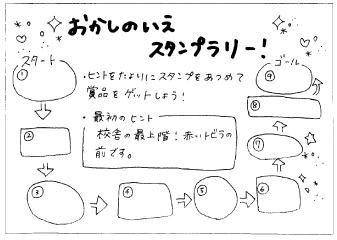 おかしのいえ
スタンプラリー！
スタート
ゴール
①
⑨
・ヒントをたよりにスタンプをあつめて
賞品をゲットしよう！
⑧
・最初のヒント
校舎の最上階！赤いトビラの
前です。
②
⑦
③
④
⑤
⑥